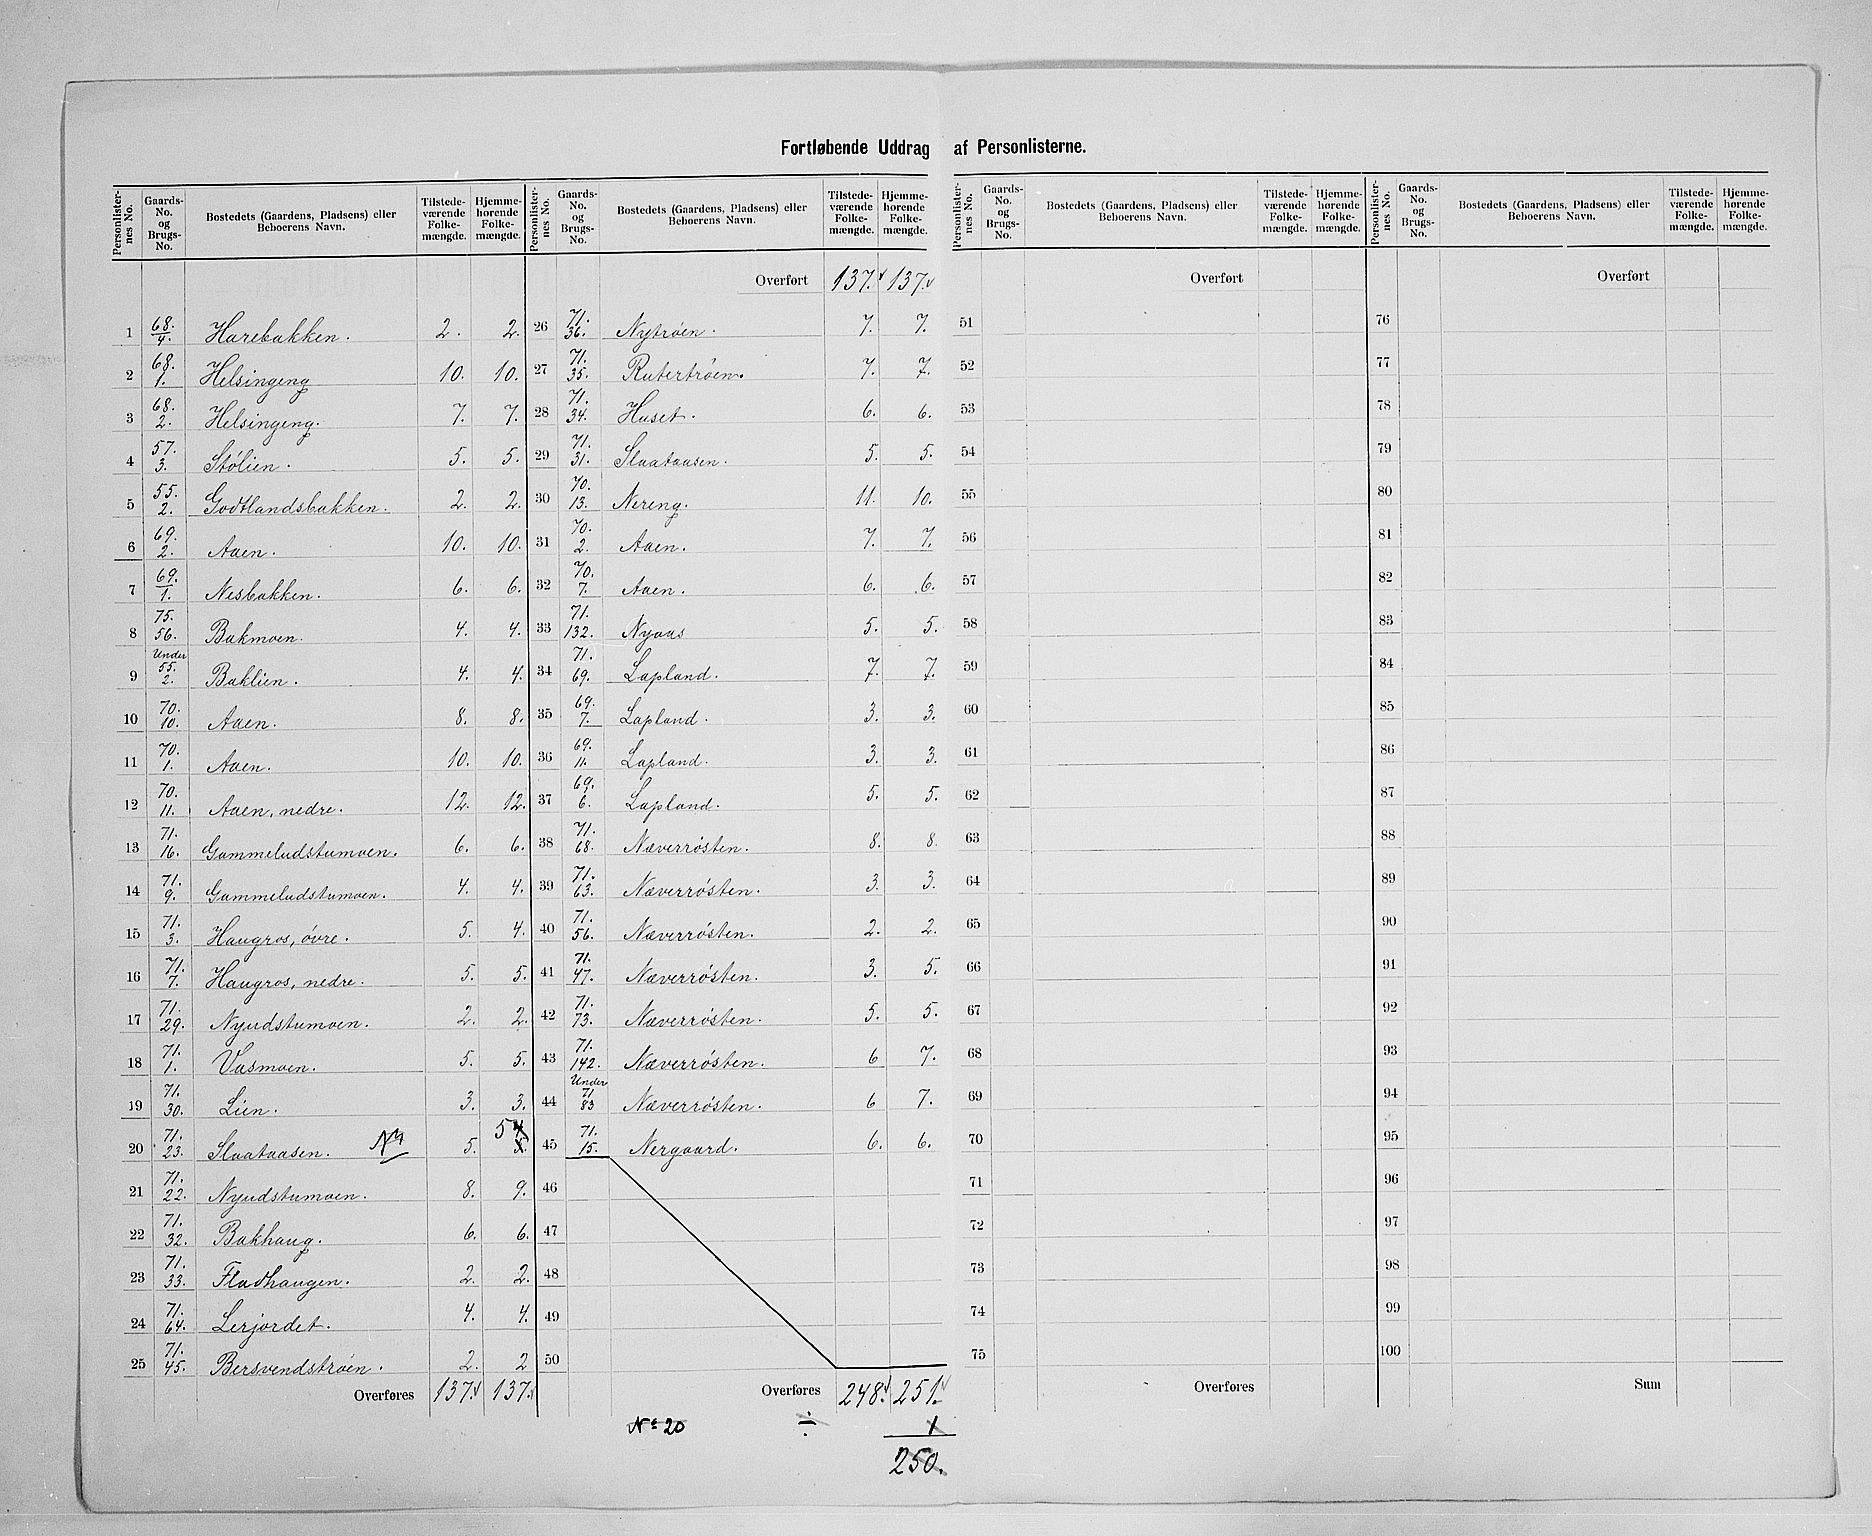 Fortløbende Uddrag af Personlisterne.
Personlister-nes No. | Gaards-No. og Brugs-No. | Bostedets (Gaardens, Pladsens) eller Beboerens Navn. | Tilstede-værende Folke-mængde. | Hjemme-hørende Folke-mængde. | Personlister-nes No. | Gaards-No. og Brugs-No. | Bostedets (Gaardens, Pladsens) eller Beboerens Navn. | Tilstede-værende Folke-mængde. | Hjemme-hørende Folke-mængde.
1 68./4. Harebakken. 2. 2.
2 68./1. Helsingeng 10. 10.
3 68./2. Helsingeng. 7. 7.
4 57./3. Stølien. 5. 5.
5 55./2. Godtlandsbakken. 2. 2.
6 69./2. Aaen. 10. 10.
7 69./1. Nesbakken. 6. 6.
8 75./56. Bakmoen. 4. 4.
9 Under 55./2. Baklien. 4. 4.
10 70./10. Aaen. 8. 8.
11 70./1. Aaen. 10. 10.
12 70./11. Aaen, nedre. 12. 12.
13 71./16. Gammeludstumoen. 6. 6.
14 71./9. Gammeludstumoen. 4. 4.
15 71./3. Haugros, øvre. 5. 4.
16 71./7. Haugros, nedre. 5. 5.
17 71./29. Nyudstumoen. 2. 2.
18 71./1. Vasmoen. 5. 5.
19 71./30. Lien. 3. 3.
20 71./23. Slaataasen. 5. 5 4 5.
21 71./22. Nyudstumoen. 8. 9.
22 71./32. Bakhaug. 6. 6.
23 71./33. Fladhaugen. 2. 2.
24 71./64. Lerjordet. 4. 4.
25 71./45. Bersvendstrøen. 2. 2
Overføres 137. 137.
Overført 137. 137.
26 71./36. Nytrøen. 7. 7.
27 71./35. Rutertrøen. 7. 7.
28 71./34. Huset. 6. 6.
29 71./31. Slaataasen. 5. 5.
30 70./13. Nereng. 11. 10.
31 70./2. Aaen. 7. 7.
32 70./7. Aaen. 6. 6.
33 71./132. Nyaas 5. 5.
34 71./69. Lapland. 7. 7.
35 69./7. Lapland. 3. 3.
36 69./11. Lapland. 3. 3.
37 69./6. Lapland. 5. 5.
38 71./68. Næverrösten. 8. 8.
39 71./63. Næverrösten. 3. 3.
40 71./56. Næverrösten. 2. 2.
41 71./47. Næverrösten. 3. 5.
42 71./73. Næverrösten. 5. 5.
43 71./142. Næverrösten. 6 7.
44 Under 71/83 Næverrösten. 6 7.
45 71./15. Nergaard. 6. 6.
46
47
48
49
50
Overføres 248. 251.
No 20 ÷ 1
250.
Personlister-nes No. | Gaards-No. og Brugs-No. | Bostedets (Gaardens, Pladsens) eller Beboerens Navn. | Tilstede-værende Folke-mængde. | Hjemme-hørende Folke-mængde. | Personlister-nes No. | Gaards-No. og Brugs-No. | Bostedets (Gaardens, Pladsens) eller Beboerens Navn. | Tilstede-værende Folke-mængde. | Hjemme-hørende Folke-mængde.
Overført
51
52
53
54
55
56
57
58
59
60
61
62
63
64
65
66
67
68
69
70
71
72
73
74
75
Overføres
Overført
76
77
78
79
80
81
82
83
84
85
86
87
88
89
90
91
92
93
94
95
96
97
98
99
100
Sum